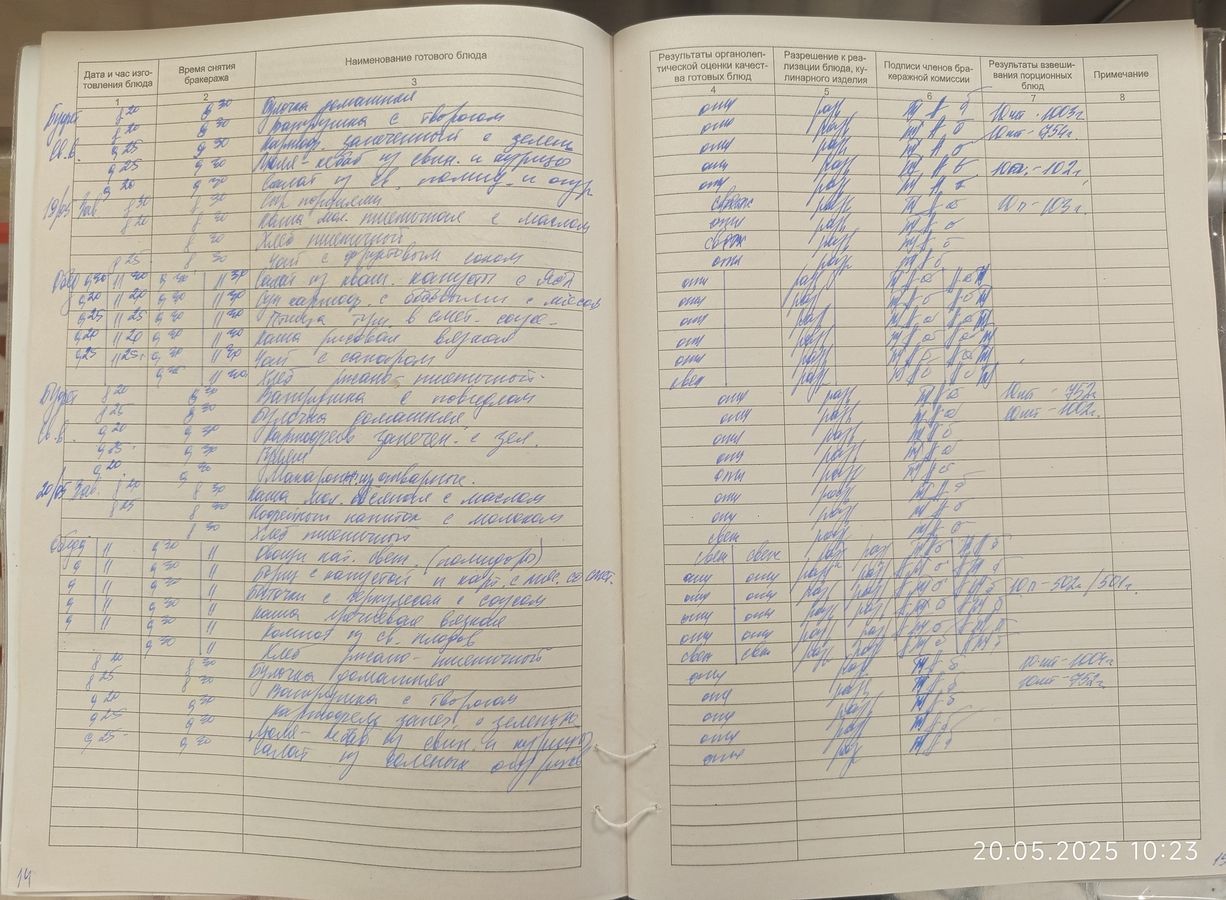 Дата и час изго-
товления блюда
Время снятия
бракеража
Наименование готового блюда
Результаты органолеп-
тической оценки качест-
ва готовых блюд
Разрешение к реа-
лизации блюда, ку-
линарного изделия
Подписи членов бра-
керажной комиссии
Результаты взвеши-
вания порционных
блюд
Примечание
1 2 3 4 5 6 7 8
Буфет 8 20 9 30 Булочка домашняя отл разр 10шт-1003г
8 20 9 30 Ватрушка с творогом отл разр 10шт-754г
Св.в. 9 25 9 30 Картоф. запеченный с зелен отл разр
9 25 9 30 Люля-кебаб из свин. и курицы отл разр
9 20 9 30 Салат из св. помид. и огур отл разр
19/05 Зав 8 30 Сыр порциями разр
8 20 8 30 Каша мол. пшеничная с маслом отл разр
8 30 Хлеб пшеничный разр
8 25 8 30 Чай с фруктовым соком отл разр
Обед 9 20 11 20 9 30 11 30 Салат из кваш. капусты с отл разр
9 20 11 20 9 30 11 30 Суп картоф. с бобовыми с мясом отл разр
9 25 11 25 9 30 11 30 Птица туш. в смет. соусе отл разр
9 20 11 20 9 30 11 30 Каша рисовая вязкая отл разр
9 25 11 25 9 30 11 30 Чай с сахаром отл разр
9 30 11 30 Хлеб ржано-пшеничный свеж разр
Буфет 8 20 9 30 Ватрушка с повидлом отл разр 10шт-752г
8 25 9 30 Булочка домашняя отл разр
Св.в. 9 20 9 30 Картофель запечен. с зел. отл разр
9 25 9 30 Гуляш отл разр
9 20 9 30 Макароны отварные отл разр
20/05 Зав. 8 20 8 30 Каша мол. овсяная с маслом отл разр
8 25 8 30 Кофейный напиток с молоком отл разр
8 30 Хлеб пшеничный свеж разр
Обед 9 11 9 30 11 Овощи нат. свеж. (помидоры) свеж свеж разр разр
9 11 9 30 11 Борщ с капустой и карт. с мяс. со смет. отл отл разр разр
9 11 9 30 11 Биточки с геркулесом с соусом отл отл разр разр 10п-502г/501г.
9 11 9 30 11 Каша гречневая вязкая отл отл разр разр
9 11 9 30 11 Компот из св. плодов отл отл разр разр
9 30 11 Хлеб ржано-пшеничный свеж свеж разр разр
8 20 8 30 Булочка домашняя отл разр 10шт-1004г
8 25 8 30 Ватрушка с творогом отл разр 10шт-752г
9 20 9 30 Картофель запеч. с зеленью отл разр
9 25 9 30 Люля-кебаб из свин. и курицы отл разр
9 25 9 30 Салат из соленых огурцов отл разр
14
20.05.2025 10:23